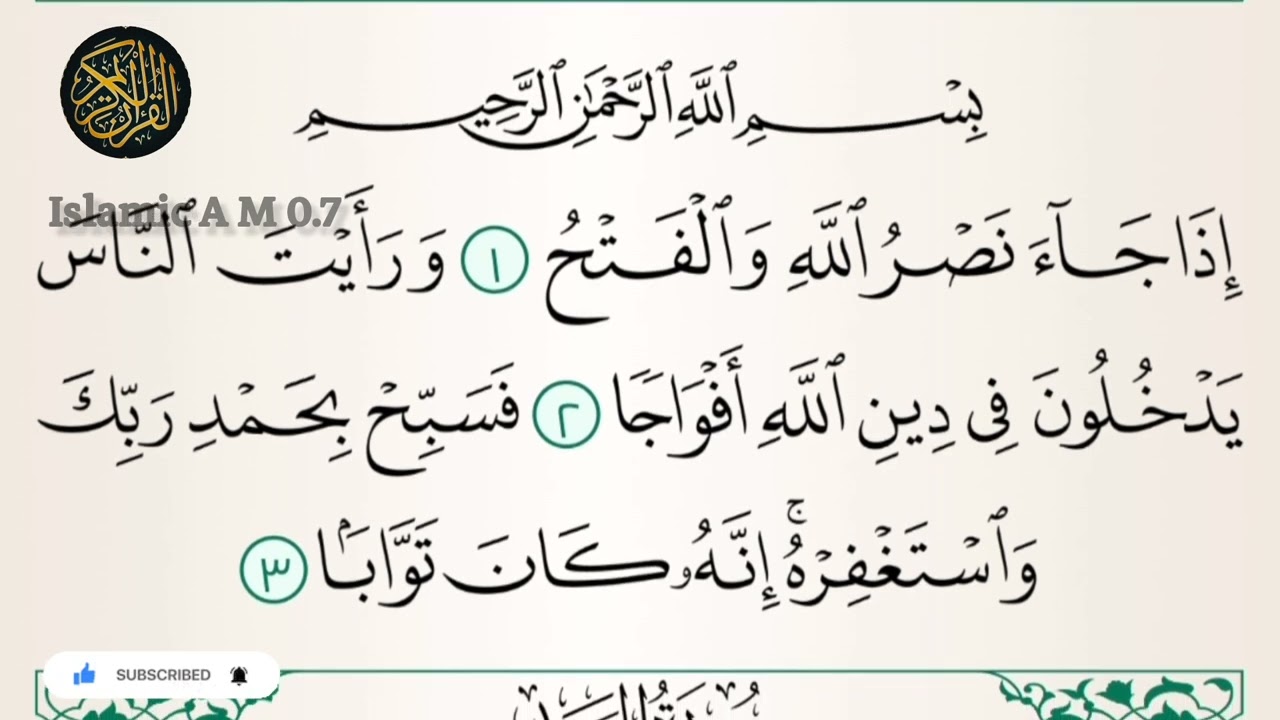 القرآن الكريم
بِسْمِ ٱللَّهِ ٱلرَّحْمَٰنِ ٱلرَّحِيمِ
Islamic A M 0.7
إِذَا جَآءَ نَصْرُ ٱللَّهِ وَٱلْفَتْحُ ١ وَرَأَيْتَ ٱلنَّاسَ
يَدْخُلُونَ فِى دِينِ ٱللَّهِ أَفْوَاجًا ٢ فَسَبِّحْ بِحَمْدِ رَبِّكَ
وَٱسْتَغْفِرْهُۚ إِنَّهُۥ كَانَ تَوَّابَۢا ٣
SUBSCRIBED
سُورَةُ المَسَد